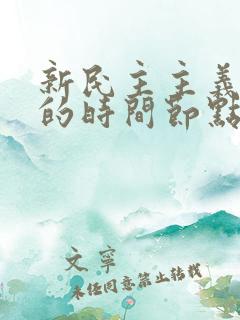 新民主主義
的時間節點
文寧
未經同意禁止轉載